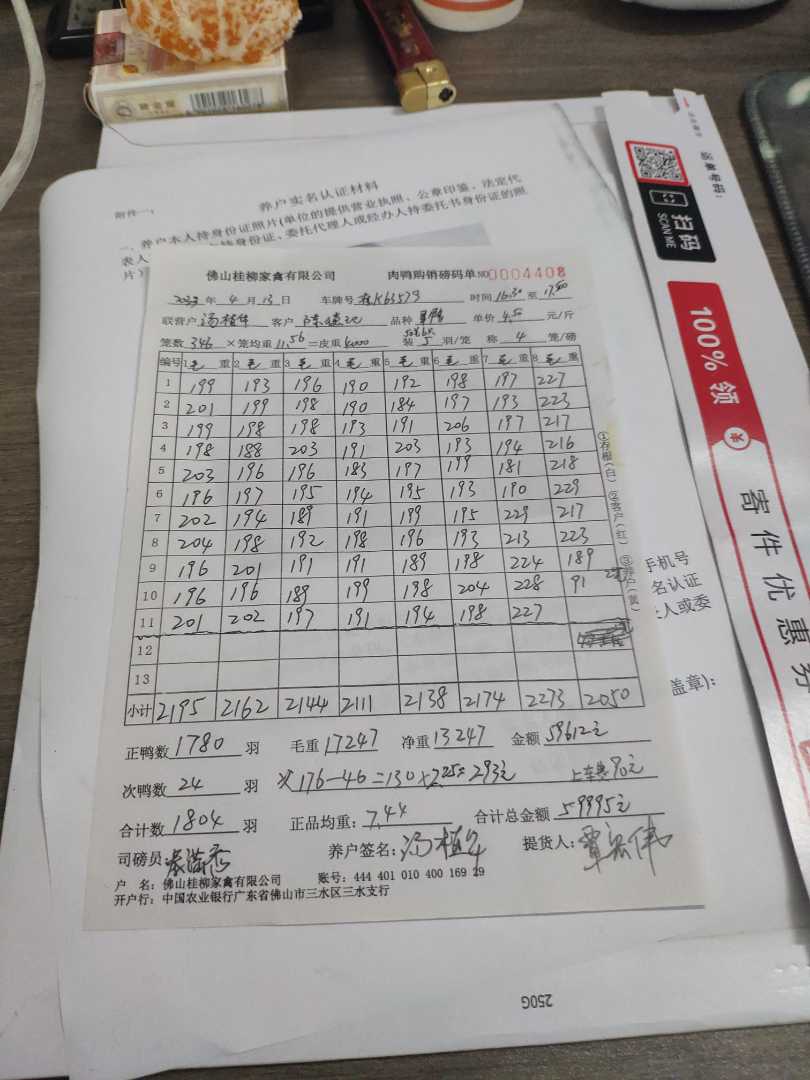 附件一：
养户实名认证材料
一、养户本人持身份证照片(单位的提供营业执照、公章印鉴、法定代
表人
持身份证、委托代理人或经办人持委托书身份证的照
片)
佛山桂柳家禽有限公司 肉鸭购销磅码单 NO 0004408
年 4 月 13 日 车牌号 时间 16:30 至 17:40
联营户 汤植华 客户 品种 单价 4.5 元/斤
笼数 346 ×笼均重 11.56 =皮重 4000 装 5 羽/笼 称 4 笼/磅
编号 1 毛 重 2 毛 重 3 毛 重 4 毛 重 5 毛 重 6 毛 重 7 毛 重 8 毛 重
1 199 193 196 190 192 198 197 227
2 201 199 198 190 184 197 193 223
3 199 198 198 193 191 206 197 217
4 198 188 203 191 203 193 194 216
5 203 196 196 183 197 199 181 218
6 196 197 195 194 195 193 190 229
7 202 194 189 191 199 195 229 217
8 204 198 192 198 196 193 213 223
9 196 201 191 191 189 198 224 189
10 196 196 189 199 198 204 228 91
11 201 202 197 191 194 198 227
12
13
小计 2195 2162 2144 2111 2138 2174 2273 2050
①存根(白) ②客户(红) ③养户(黄)
正鸭数 1780 羽 毛重 17247 净重 13247 金额 59612元
次鸭数 24 羽 176-46=130×2.25=293元 上车费90元
合计数 1804 羽 正品均重: 7.44 合计总金额 59995元
司磅员: 养户签名: 汤植华 提货人: 覃宏伟
户 名: 佛山桂柳家禽有限公司 账号: 444 401 010 400 169 29
开户行: 中国农业银行广东省佛山市三水区三水支行
手机号
名认证
人或委
盖章):
250G
扫码
SCAN ME
100% 领
寄件优惠券